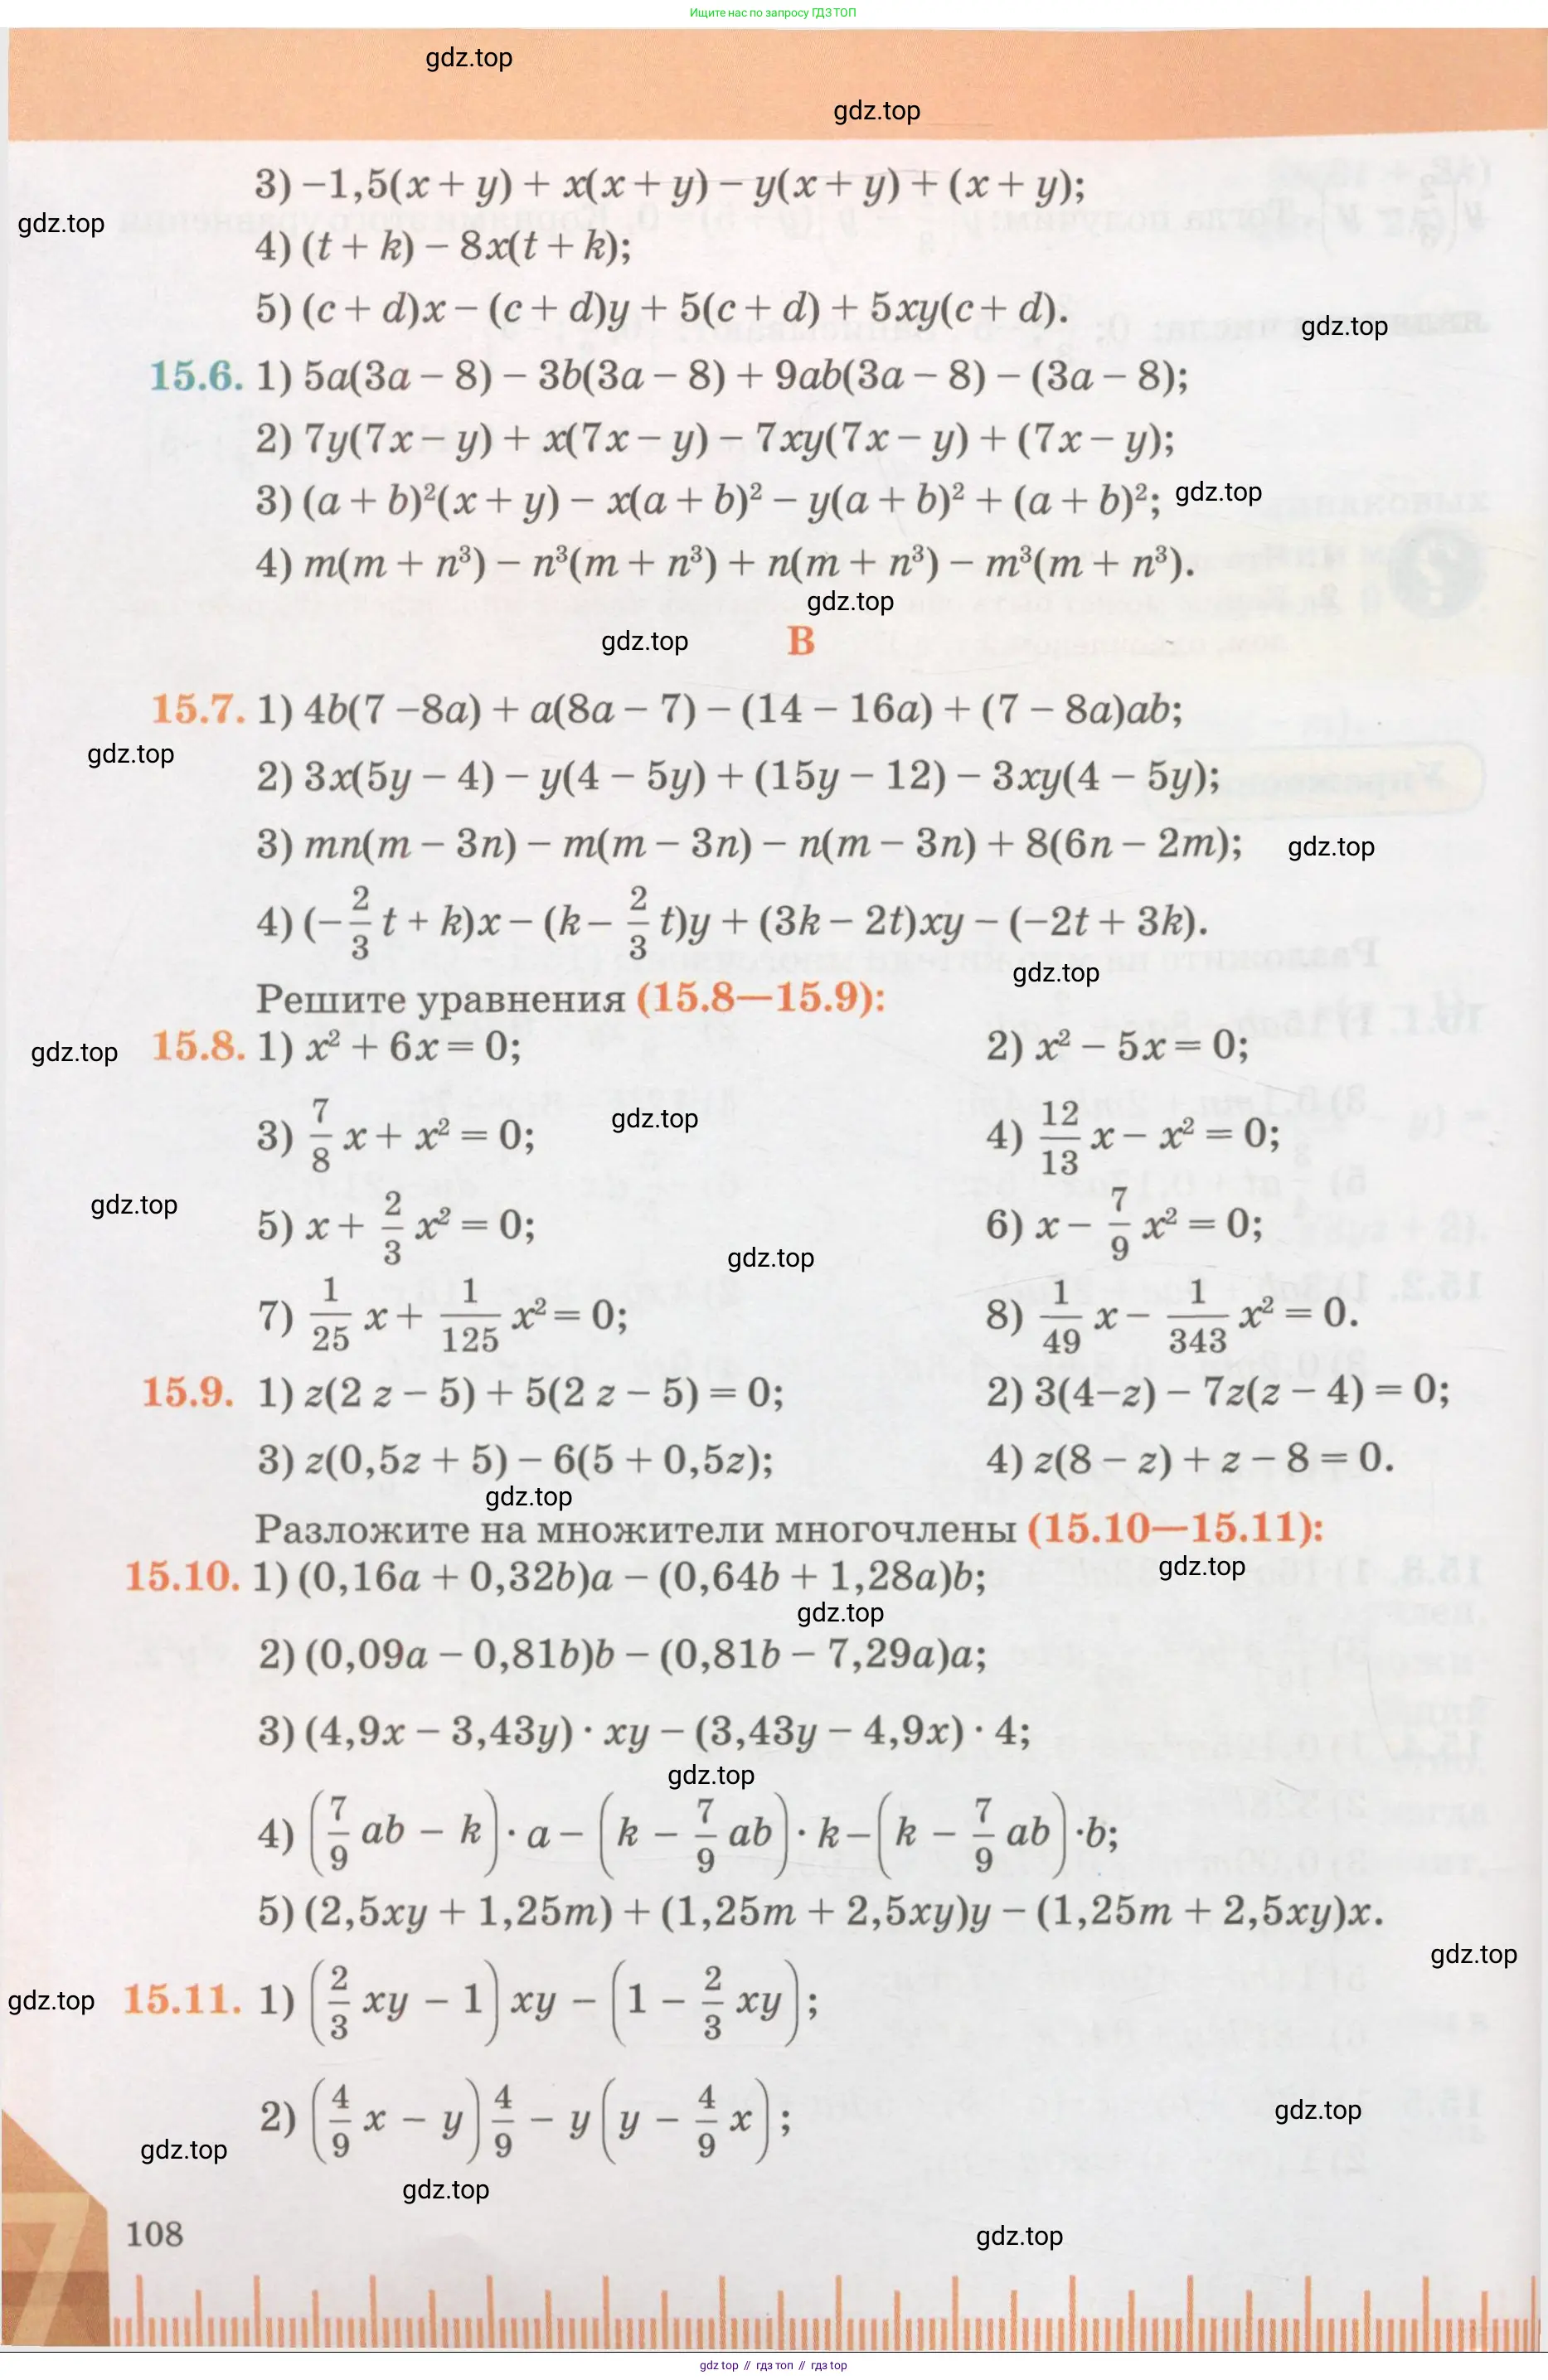 Ищите нас по запросу ГДЗ ТОП
gdz.top
gdz.top
3) –1,5(x + y) + x(x + y) – y(x + y) + (x + y);
gdz.top
4) (t + k) – 8x(t + k);
5) (c + d)x – (c + d)y + 5(c + d) + 5xy(c + d).
gdz.top
15.6. 1) 5a(3a – 8) – 3b(3a – 8) + 9ab(3a – 8) – (3a – 8);
2) 7y(7x – y) + x(7x – y) – 7xy(7x – y) + (7x – y);
3) (a + b)²(x + y) – x(a + b)² – y(a + b)² + (a + b)²; gdz.top
4) m(m + n³) – n³(m + n³) + n(m + n³) – m³(m + n³).
gdz.top
gdz.top
В
15.7. 1) 4b(7 –8a) + a(8a – 7) – (14 – 16a) + (7 – 8a)ab;
gdz.top
2) 3x(5y – 4) – y(4 – 5y) + (15y – 12) – 3xy(4 – 5y);
3) mn(m – 3n) – m(m – 3n) – n(m – 3n) + 8(6n – 2m); gdz.top
4) (–2/3 t + k)x – (k – 2/3 t)y + (3k – 2t)xy – (–2t + 3k).
gdz.top
Решите уравнения (15.8—15.9):
gdz.top 15.8. 1) x² + 6x = 0; 2) x² – 5x = 0;
3) 7/8 x + x² = 0; gdz.top 4) 12/13 x – x² = 0;
gdz.top 5) x + 2/3 x² = 0; 6) x – 7/9 x² = 0;
gdz.top
7) 1/25 x + 1/125 x² = 0; 8) 1/49 x – 1/343 x² = 0.
15.9. 1) z(2 z – 5) + 5(2 z – 5) = 0; 2) 3(4–z) – 7z(z – 4) = 0;
3) z(0,5z + 5) – 6(5 + 0,5z); 4) z(8 – z) + z – 8 = 0.
gdz.top
Разложите на множители многочлены (15.10—15.11):
gdz.top
15.10. 1) (0,16a + 0,32b)a – (0,64b + 1,28a)b;
gdz.top
2) (0,09a – 0,81b)b – (0,81b – 7,29a)a;
3) (4,9x – 3,43y) · xy – (3,43y – 4,9x) · 4;
gdz.top
4) (7/9 ab – k) · a – (k – 7/9 ab) · k – (k – 7/9 ab) ·b;
5) (2,5xy + 1,25m) + (1,25m + 2,5xy)y – (1,25m + 2,5xy)x.
gdz.top
gdz.top 15.11. 1) (2/3 xy – 1) xy – (1 – 2/3 xy);
2) (4/9 x – y) 4/9 – y (y – 4/9 x);
gdz.top
gdz.top
gdz.top
7
108
gdz.top
gdz top // гдз топ // гдз top